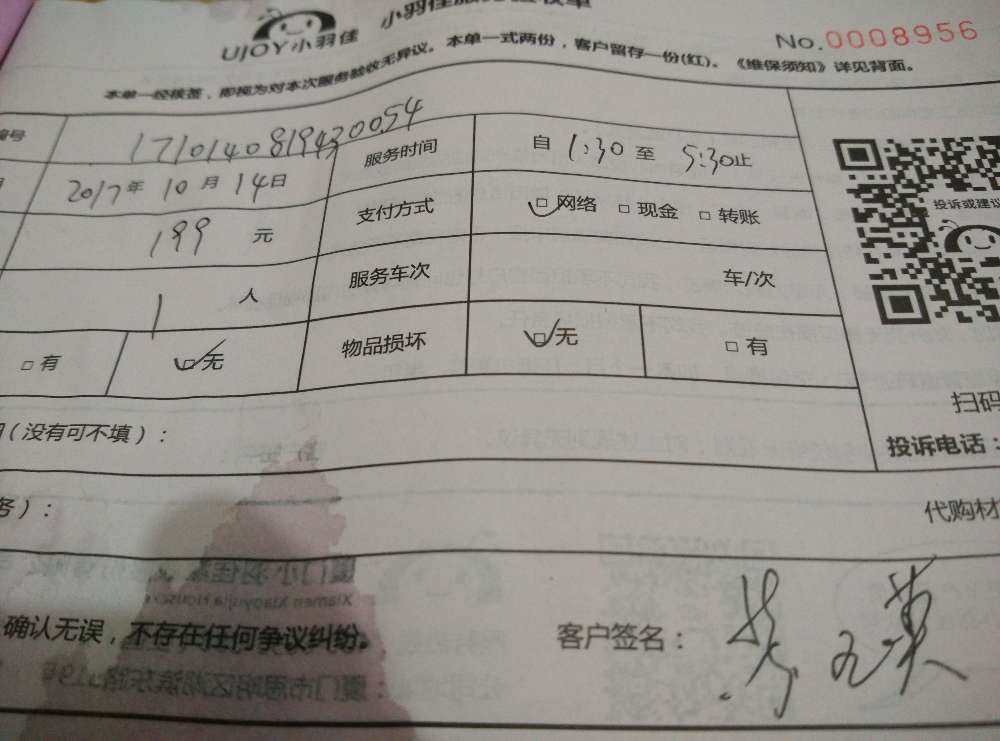 UJOY小羽佳 小羽佳服务验收单
No.0008956
本单一经核签，即视为对本次服务验收无异议。本单一式两份，客户留存一份(红)。《维保须知》详见背面。
编号 1710140819430054 服务时间 自 1:30 至 5:30止
2017年 10月 14日 支付方式 □网络 □现金 □转账
199 元
投诉或建议
1 人 服务车次 车/次
□有 □无 物品损坏 □无 □有
（没有可不填）：
扫码
投诉电话：
务）： 代购材
确认无误，不存在任何争议纠纷。 客户签名：